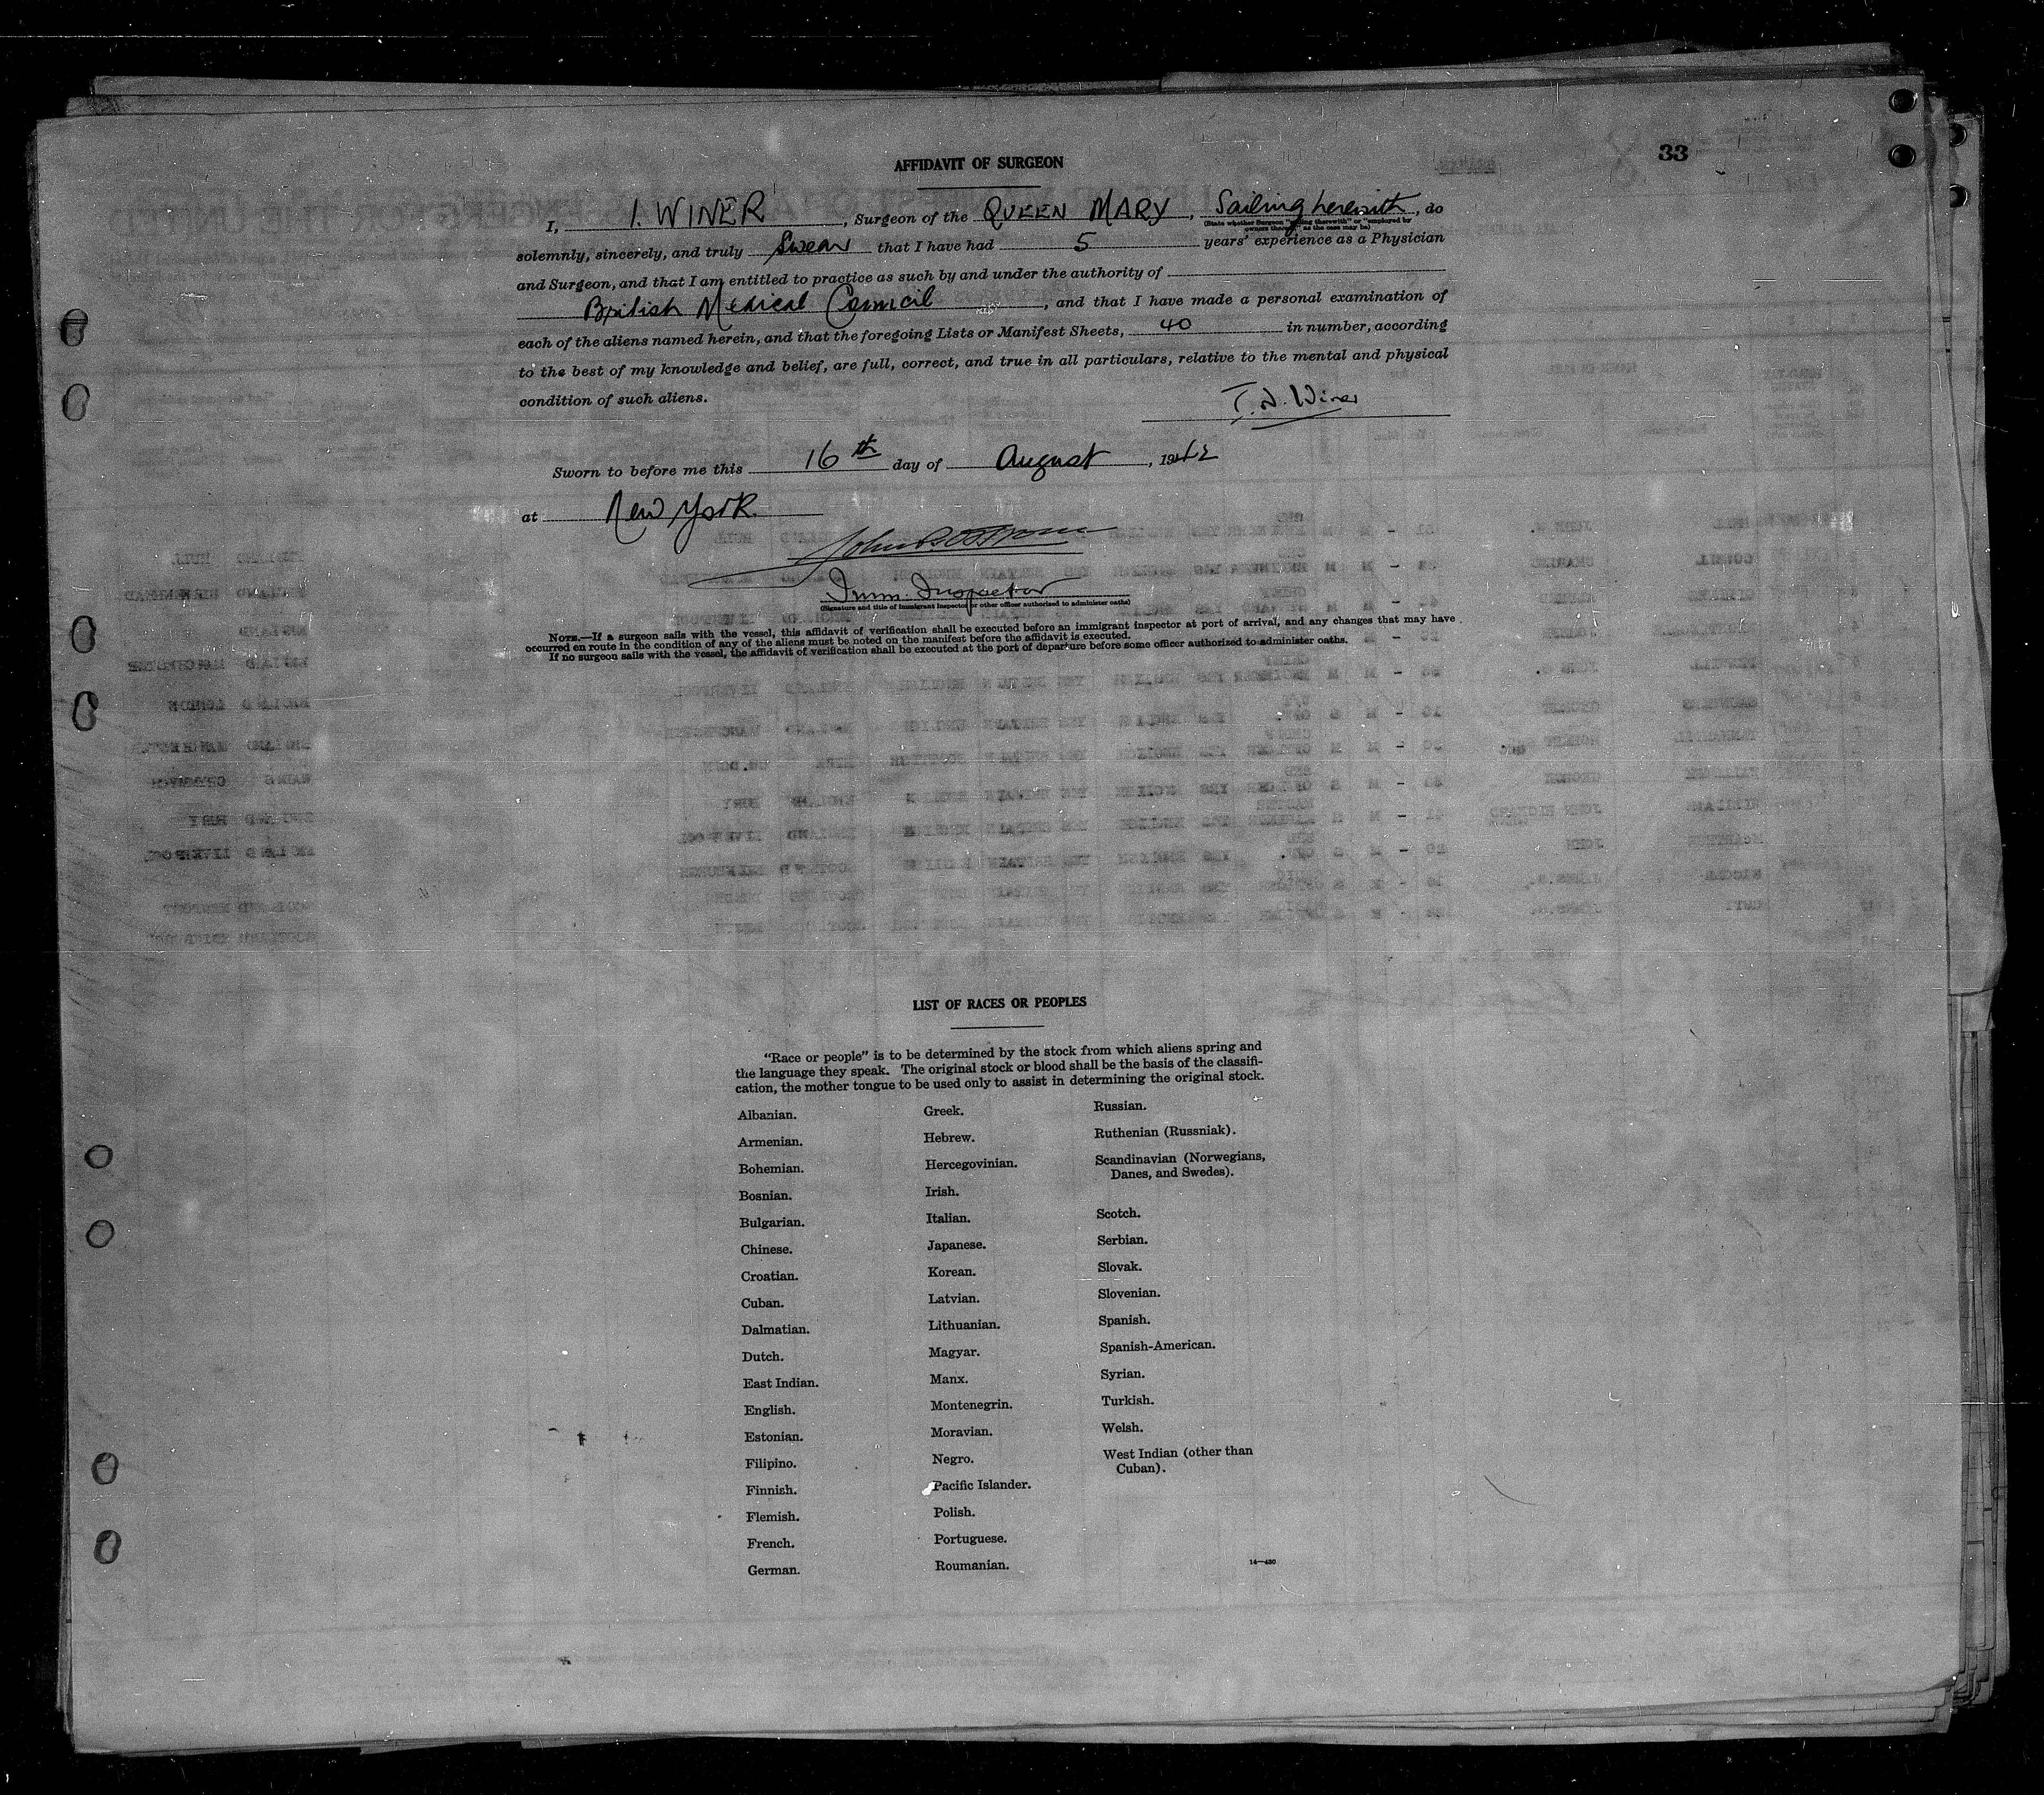 33
AFFIDAVIT OF SURGEON
I, I. WINER, Surgeon of the QUEEN MARY, Sailing herewith, do
(State whether Surgeon "sailing therewith" or "employed by
owners thereof," as the case may be)
solemnly, sincerely, and truly Swear that I have had 5 years' experience as a Physician
and Surgeon, and that I am entitled to practice as such by and under the authority of
British Medical Council, and that I have made a personal examination of
each of the aliens named herein, and that the foregoing Lists or Manifest Sheets, 40 in number, according
to the best of my knowledge and belief, are full, correct, and true in all particulars, relative to the mental and physical
condition of such aliens.
Winer
Sworn to before me this 16th day of August, 1942
at New York
John
Imm. Inspector
(Signature and title of Immigrant Inspector or other officer authorized to administer oaths)
NOTE.—If a surgeon sails with the vessel, this affidavit of verification shall be executed before an immigrant inspector at port of arrival, and any changes that may have
occurred en route in the condition of any of the aliens must be noted on the manifest before the affidavit is executed.
If no surgeon sails with the vessel, the affidavit of verification shall be executed at the port of departure before some officer authorized to administer oaths.
LIST OF RACES OR PEOPLES
"Race or people" is to be determined by the stock from which aliens spring and
the language they speak. The original stock or blood shall be the basis of the classifi-
cation, the mother tongue to be used only to assist in determining the original stock.
Albanian.
Armenian.
Bohemian.
Bosnian.
Bulgarian.
Chinese.
Croatian.
Cuban.
Dalmatian.
Dutch.
East Indian.
English.
Estonian.
Filipino.
Finnish.
Flemish.
French.
German.
Greek.
Hebrew.
Hercegovinian.
Irish.
Italian.
Japanese.
Korean.
Latvian.
Lithuanian.
Magyar.
Manx.
Montenegrin.
Moravian.
Negro.
Pacific Islander.
Polish.
Portuguese.
Roumanian.
Russian.
Ruthenian (Russniak).
Scandinavian (Norwegians,
Danes, and Swedes).
Scotch.
Serbian.
Slovak.
Slovenian.
Spanish.
Spanish-American.
Syrian.
Turkish.
Welsh.
West Indian (other than
Cuban).
14—430